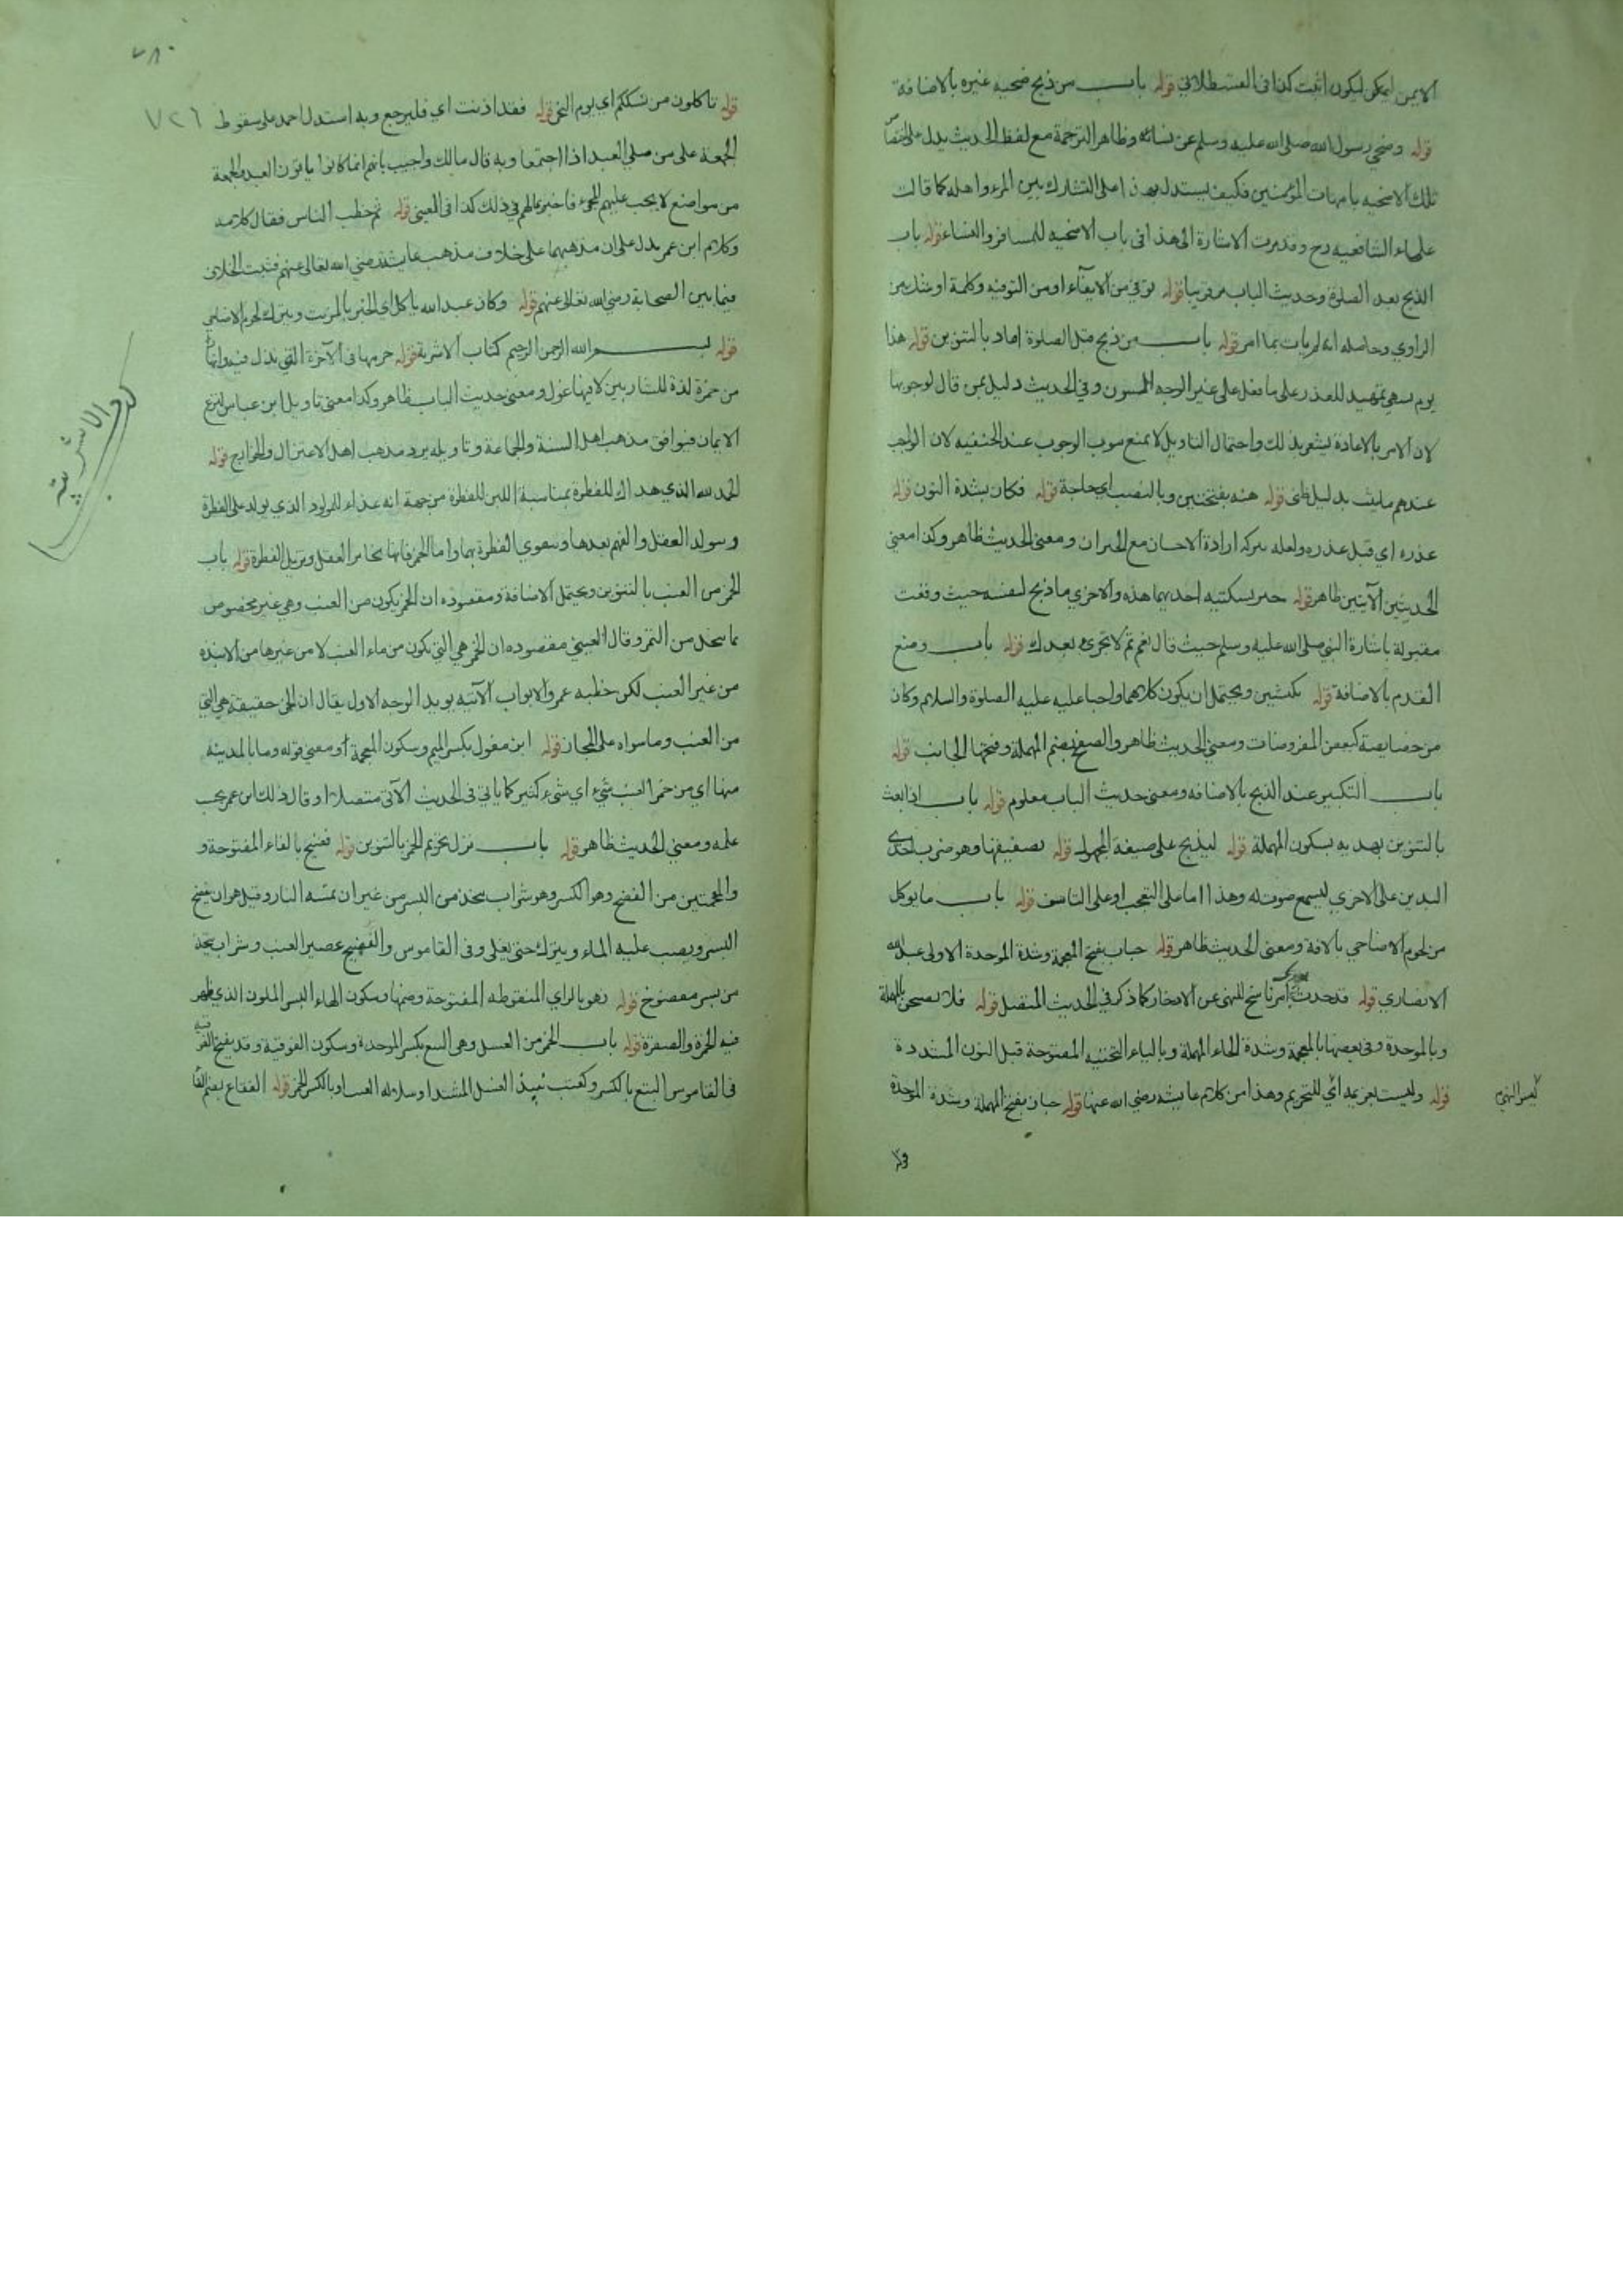 الايمن ليكون اثبت كذا فى القسطلانى قوله باب من ذبح ضحية غيره بالاضافة
قوله وضحى رسول الله صلى الله عليه وسلم عن نسائه وظاهر الترجمة مع لفظ الحديث يدل على
تلك الاضحيه بامهات المؤمنين فكيف يستدل بهذا على التشارك بين المرء واهله كما قالت
علماء الشافعيه رح وقد مرت الاشارة الى هذا فى باب الاضحيه للمسافر والنساء قوله باب
الذبح بعد الصلوة وحديث الباب مر قريبا قوله توفى من الايفآء او من التوفيه وكلمة او شك من
الراوي وحاصله انه لم يات بما امر قوله باب من ذبح قبل الصلوة اعاد بالتنوين قوله هذا
يوم يشتهى تمهيد للعذر على ما فعل على غير الوجه المسنون وفي الحديث دليل لمن قال لوجوبها
لان الامر بالاعادة يشعر بذلك واحتمال التاويل لا يمنع الوجوب عند الحنفيه لان الواجب
عندهم ما يثبت بدليل ظنى قوله هنه بفتحتين وبالنصب اي حاجة قوله فكان بشدة النون قوله
عذره اي قبل عذره ولعله ارادة الاحسان مع الجيران ومعنى الحديث ظاهر وكذا معنى
الحديثين الآتيين ظاهر قوله خير نسيكتيه احديهما هذه والاخرى ما ذبح لنفسه حيث وقعت
مقبولة باشارة النبي صلى الله عليه وسلم حيث قال نعم ثم لا تجزئ بعدك قوله باب وضع
القدم بالاضافة قوله بكبشين ويحتمل ان يكون كلاهما واجبا عليه عليه الصلوة والسلام وكان
من خصايصه كبعض المفروضات ومعنى الحديث ظاهر والصفح بضم المهملة وفتحها الجانب قوله
باب التكبير عند الذبح بالاضافه ومعنى حديث الباب معلوم قوله باب اذا بعث
بالتنوين بهديه بسكون المهملة قوله ليذبح على صيغة المجهول قوله تصفيقها وهو ضرب احدى
اليدين على الاخرى ليسمع صوت له وهذا اما على التعجب او على التاسف قوله باب ما يوكل
من لحوم الاضاحي بالاضافة ومعنى الحديث ظاهر قوله خباب بفتح المعجمة وشدة الموحدة الاولى عبد الله
الانصاري قوله قد حدث امر ناسخ للنهى عن الادخار كما ذكر في الحديث المتصل قوله فلا يصبحن بالمهملة
وبالموحدة وفى بعضها بالمعجمة وشدة الحاء المهملة وبالياء التحتيه المفتوحة قبل النون المشددة
قوله وليست بعزيمة اي للتحريم وهذا من كلام عايشه رضي الله عنها قوله حبان بفتح المهملة وشدة الموحدة
ليس النهي
٧٢٦
قوله تاكلون من نسككم اي يوم النحر قوله فقد اذنت اي فليرجع وبه استدل احمد على سقوط
الجمعة على من صلى العيد اذا اجتمعا وبه قال مالك واجيب بانهم انما كانوا ياتون العيد والجمعة
من مواضع لا يجب عليهم المجيء فاخبر بمالهم في ذلك كذا فى العينى قوله ثم خطب الناس فقال كلامه
وكلام ابن عمر يدل على ان مذهبهما على خلاف مذهب عايشة رضي الله تعالى عنهم فثبت الخلاف
فيما بين الصحابة رضي الله تعالى عنهم قوله وكان عبد الله ياكل اي الخبز بالزيت ويترك لحوم الاضاحي
قوله بسم الله الرحمن الرحيم كتاب الاشربة قوله حرمها فى الآخرة التي
من خمرة لذة للشاربين لا فيها غول ومعنى حديث الباب ظاهر وكذا معنى تاويل ابن عباس بنزع
الايمان فيوافق مذهب اهل السنة والجماعة وتاويله يرد مذهب اهل الاعتزال والخوارج قوله
الحمد لله الذي هداك للفطرة بمناسبة اللبن للفطرة من جهة انه غذاء للمولود الذي يولد على الفطرة
وسولد العقل والفهم بعدها وتقوي الفطرة بهما واما الخمر فانها تخامر العقل وتزيل الفطرة قوله باب
الخمر من العنب بالتنوين ويحتمل الاضافة ومقصوده ان الخمر يكون من العنب وهي غير مخصوص
بما يتخذ من التمر وقال العينى مقصوده ان الخمر هي التي تكون من ماء العنب لا من غيرها من الانبذة
من غير العنب لكن خطبه عمر والابواب الآتيه يويد الوجه الاول يقال ان الخمر حقيقة هي التي
من العنب وما سواه على المجاز قوله ابن مغول بكسر الميم وسكون المعجمة او معنى قوله وما بالمدينه
منها اي من خمر العنب شيء اي شيء كثير كما ياتي فى الحديث الآتى متصلا او قال ذلك ابن عمر بحسب
علمه ومعنى الحديث ظاهر قوله باب نزل تحريم الخمر بالتنوين قوله فضيخ بالفاء المفتوحة و
والمعجمتين من الفضخ وهو الكسر وهو شراب يتخذ من البسر من غير ان تمسه النار وقيل هو ان يفضخ
البسر ويصب عليه الماء ويترك حتى يغلى وفى القاموس والفضيخ عصير العنب وشراب يتخذ
من بسر مفضوخ قوله زهو بالزاي المنقوطه المفتوحة وضمها وسكون الهاء البسر الملون الذي ظهر
فيه الحمرة والصفرة قوله باب الخمر من العسل وهى البتع بكسر الموحدة وسكون الفوقية وقد يفتح الفوقية
فى القاموس البتع بالكسر وكعنب نبيذ العسل المشتد او سلالة العنب او بالكسر الخمر قوله الفقاع بضم الفاء
كتاب الاشربة